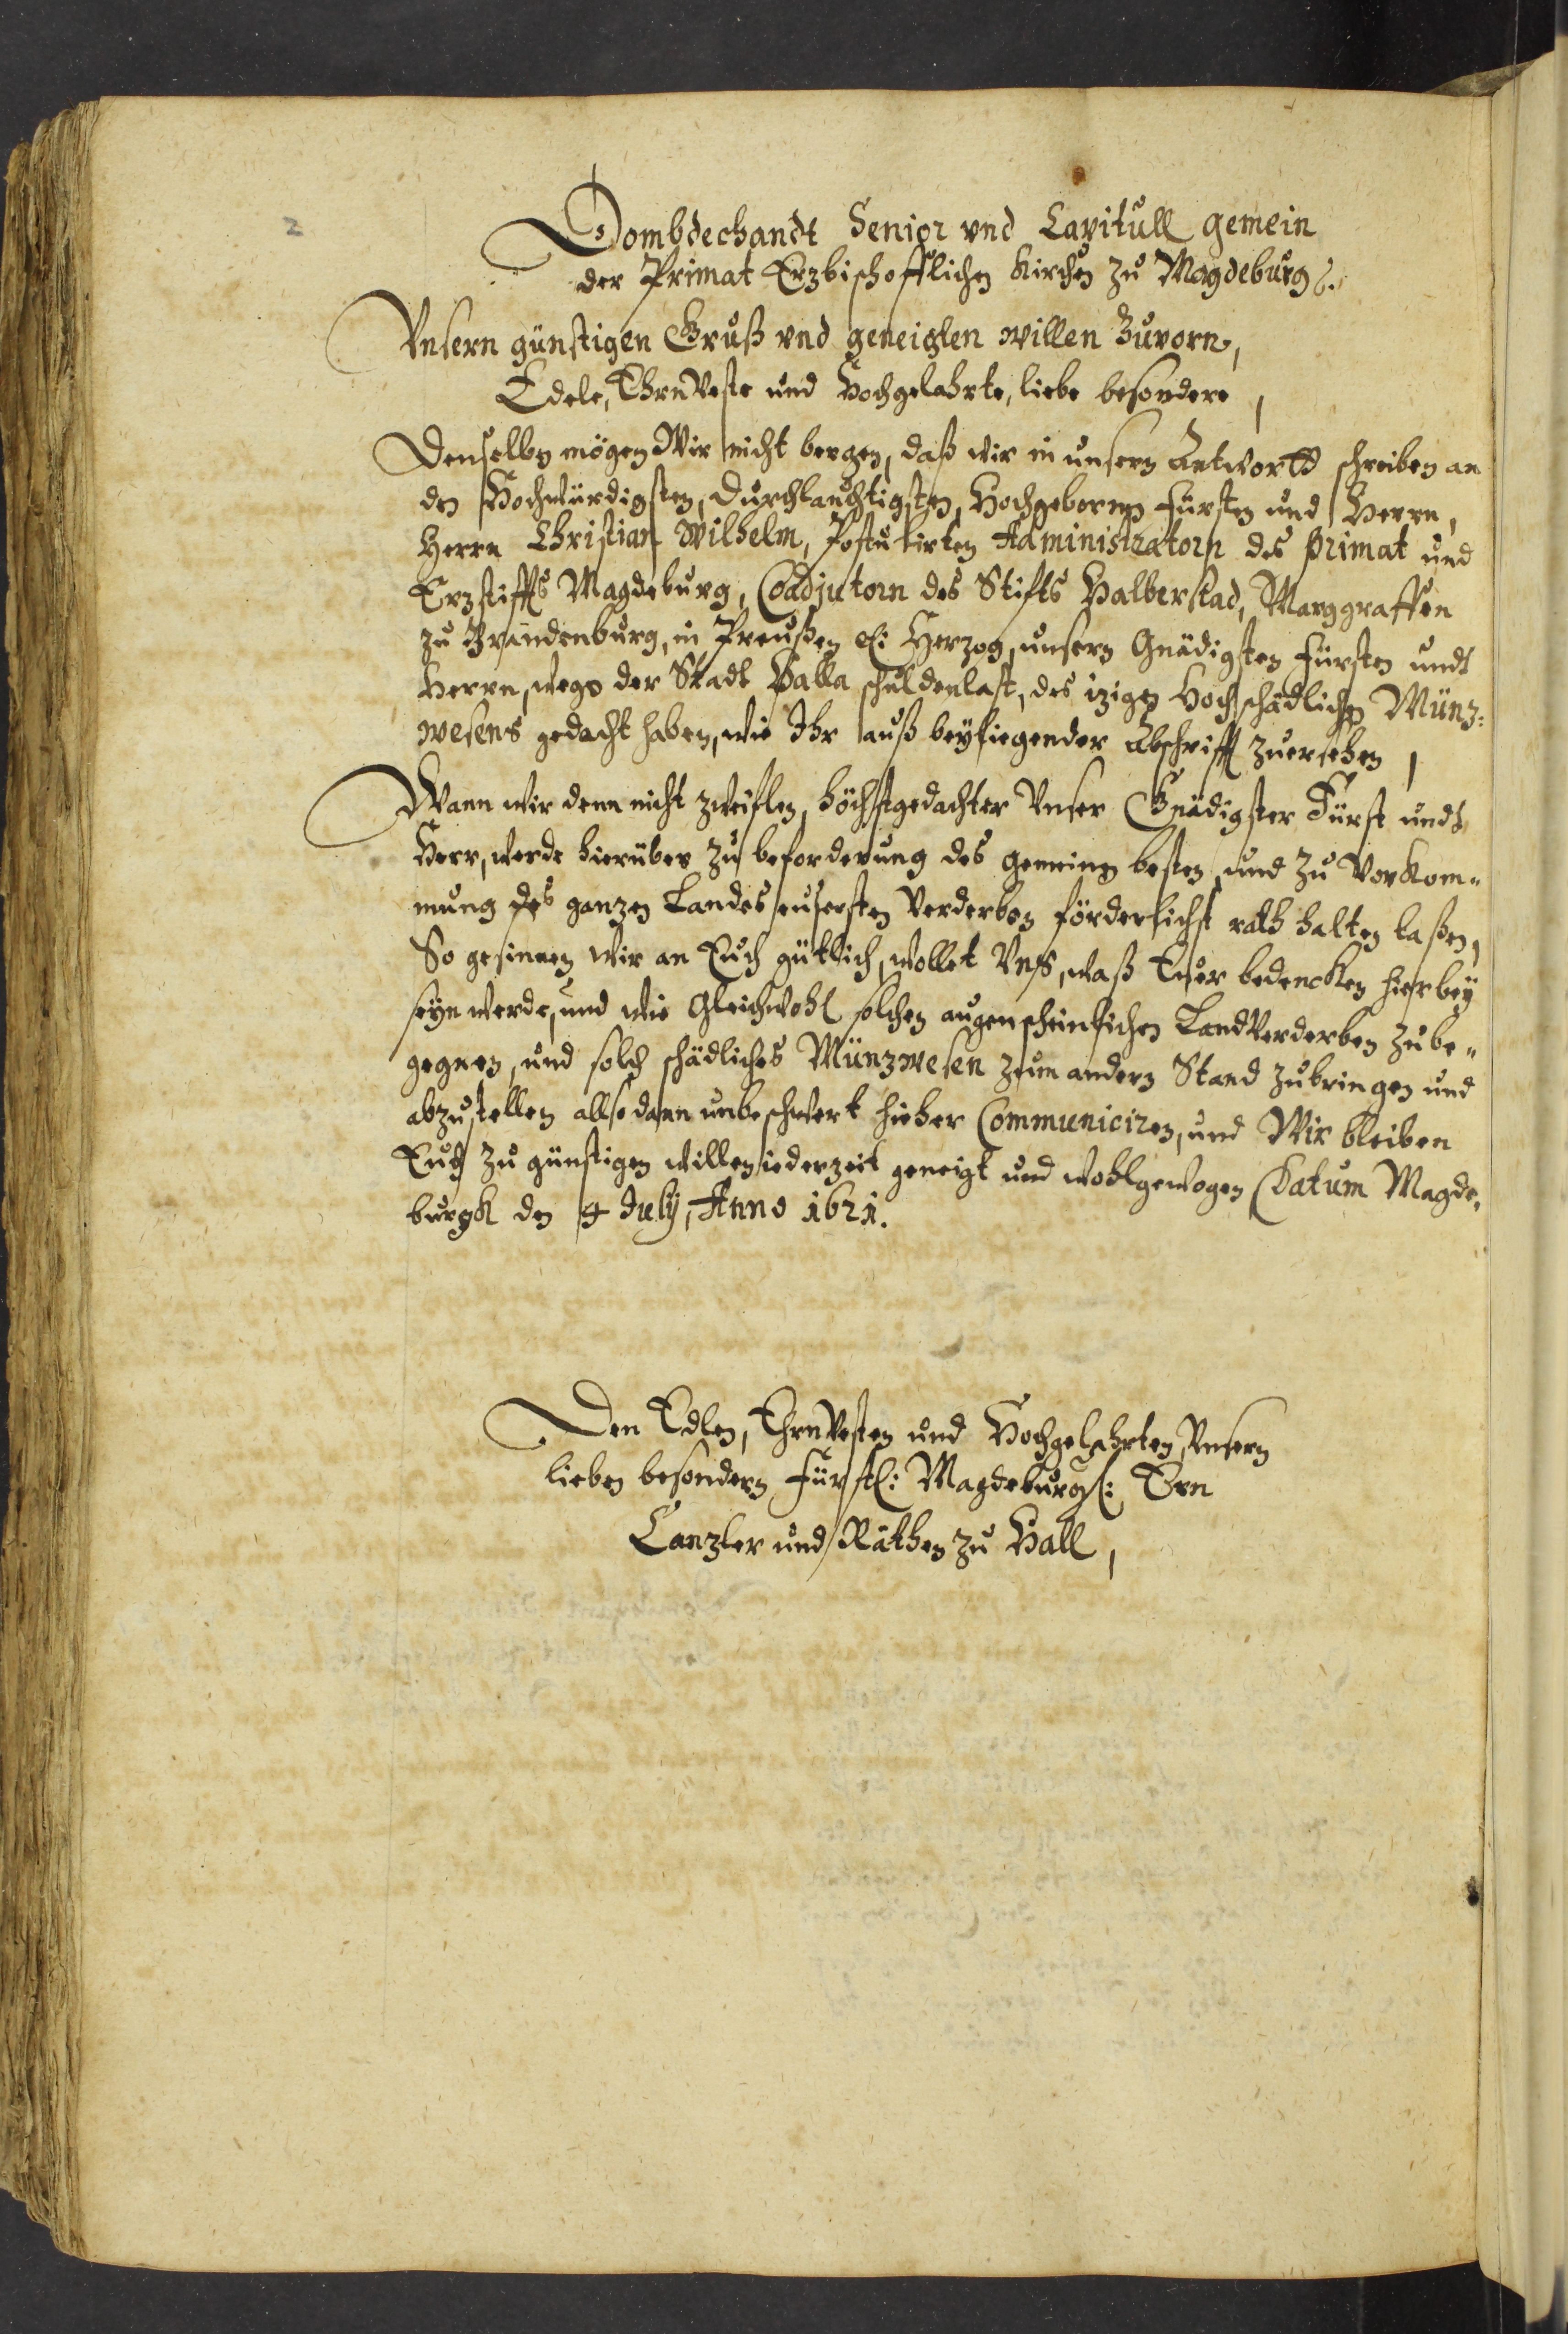 2
Dombdechandt Senior vnd Capitull gemein
der Primat Erzbischofflichen Kirchen zu Magdeburg
Vnsern günstigen Gruß vnd geneigten willen Zuvorn,
Edele, EhrnVeste und Hochgelahrte, liebe besondere,
Denselben mögen Wir nicht bergen, daß wir in unsern Antwortt schreiben an
den Hochwürdigsten, Durchlauchtigsten, Hochgebornen Fürsten und Herrn,
Herrn Christian Wilhelm, Postulirten Administratorn des Primat und
Erzstiffts Magdeburg, Coadjutorn des Stifts Halberstad, Marggraffen
zu Brandenburg, in Preußen Herzog, unsern Gnädigsten Fürsten undt
Herrn, wegen der Stadt Halla schuldenlast, des izigen Hochschädlichen Münz=
wesens gedacht haben, wie Ihr auß beyliegender Abschrifft zuersehen,
Wann wir denn nicht zweiflen, höchstgedachter Vnser Gnädigster Fürst undt
Herr, werde hierüber zu beforderung des gemeinen besten, und zu Vorkom=
mung des ganzen Landes eusersten Verderben förderlichst rath halten laßen,
So gesinnen wir an Euch gütlich, wollet Vns, waß Ewer bedencken hierbey
seyn werde, und wie Gleichwohl solchen augenscheinlichen LandVerderben zube=
gegnen, und solch schädliches Münzwesen zum andern Stand zubringen und
abzustellen allsdann unbeschwert hieher Communiciren, und Wir bleiben
Euch zu günstigen willen iederzeit geneigt und wohlgewogen Datum Magde=
burgk den 4 July, Anno 1621.
Den Edlen, EhrnVesten und Hochgelahrten, Vnsern
lieben besondern Fürstl: Magdeburgl: Ern
Canzler und Räthen zu Hall,